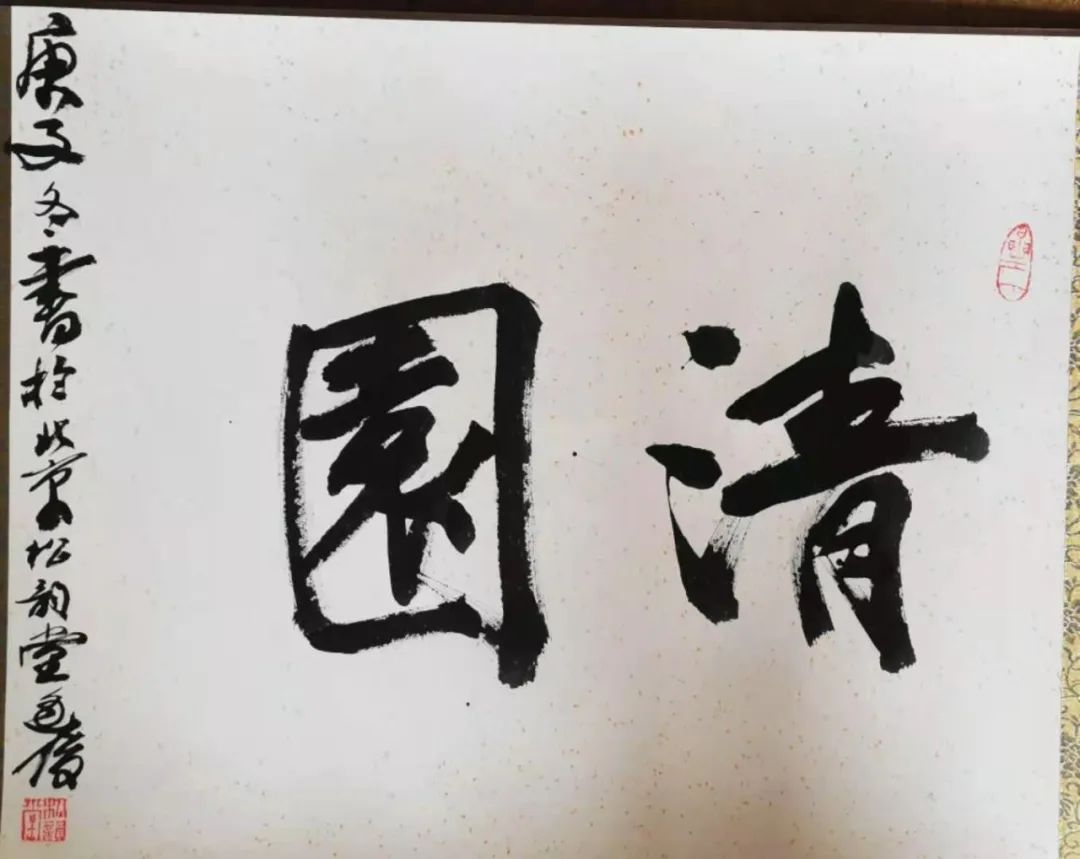 清園
庚子冬書於北京松韵堂